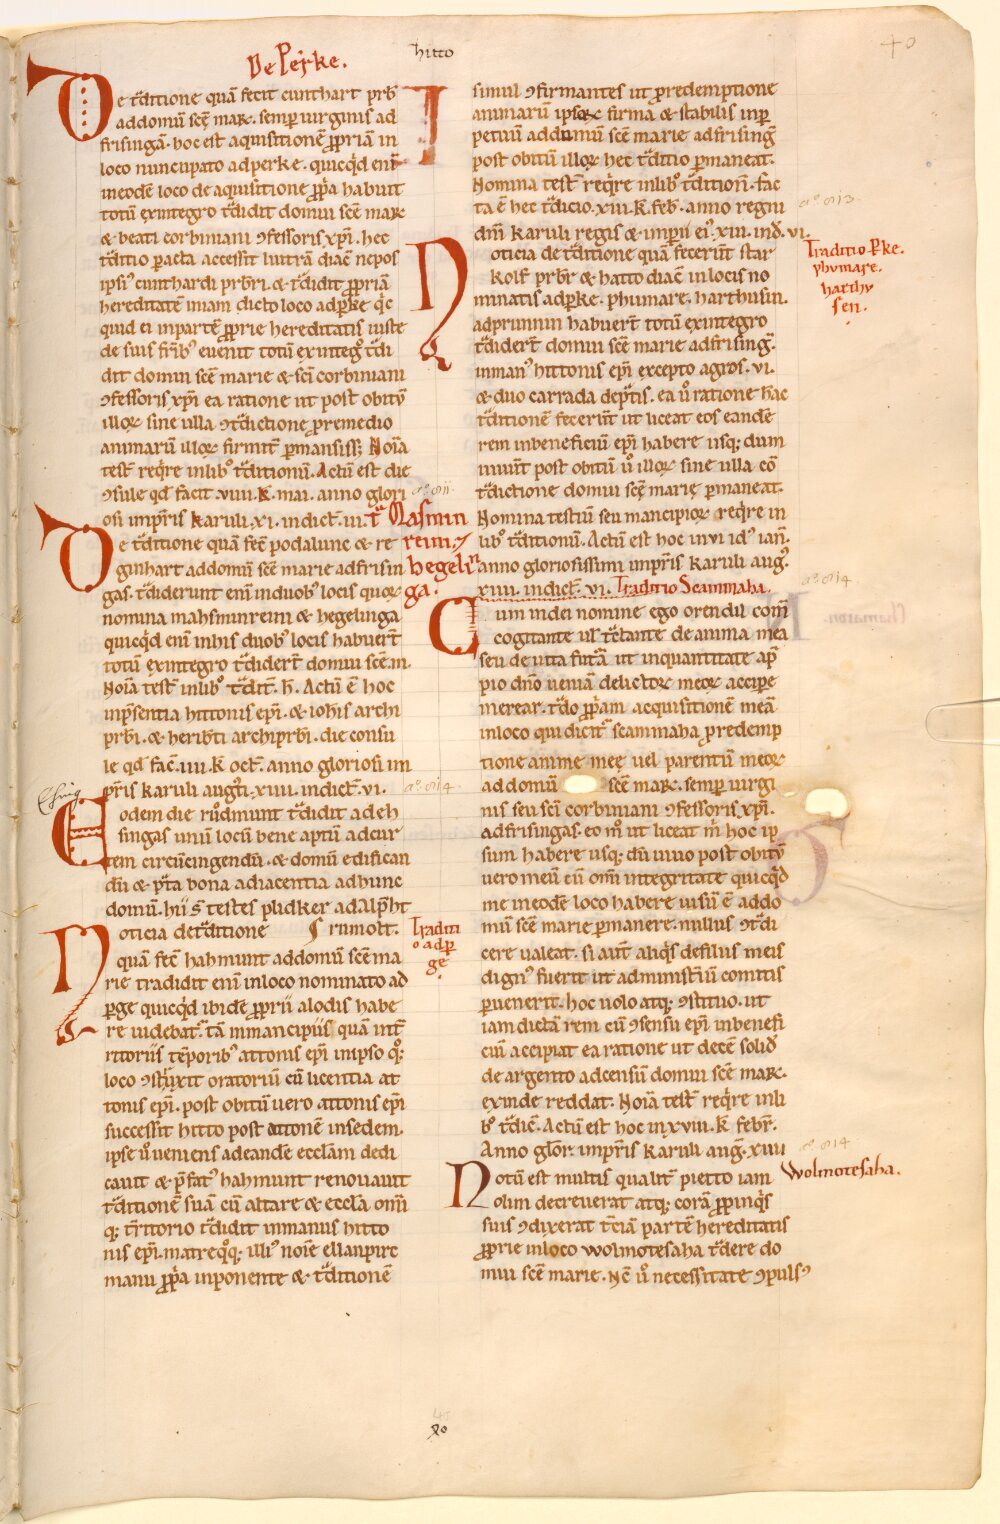 hitto
40
De Perke.
De t̅ditione quā fecit cunthart prb̅
addomū scę marię. semꝑ uirginis ad
frisingā. hoc est aquisitionē ꝓpriā in
loco nuncupato adperke. quicq̇d eni̅
ineodē loco de aquisitione ꝓp̃a habuit
totū exintegro t̅didit domui scē marię
& beati corbiniani ꝯfessoris xp̅i. hec
t̅ditio ꝑacta accessit liutrā diac̅ nepos
ipsiꝰ cunthardi prb̅ri. & t̅didit ꝓpriā
hereditatē suam dicto loco adꝑke q̇c
quid ei inpartē ꝓprie hereditatis iuste
de suis fr̅ibꝰ euenit totū ex integͦ t̅di
dit domui scē marie & sc̅i corbiniani
ꝯfessoris xp̅i ea ratione ut post obitū
illoꝝ sine ulla ꝯt̅dictione ꝓremedio
animarū illoꝝ firmit̅ ꝑmansiss; Noīa
test̅ reqͥre inlibꝰ t̅ditionū. Actū est die
ꝯsule qd̅ facit. viiii. k̅. mai. anno glori
osi impr̅is karuli. xi. indict̅. iii.
aͦ. 811.
T̅ Masmin
reini. 7
hegelin
ga.
De t̅ditione quā fec̅ podalunc & re
ginhart addomū scē marie adfrisin
gas. t̅diderunt eni̅ induobꝰ locis quoꝝ
nomina mahsminreini & hegelinga
quicq̇d eni̅ inhis duobꝰ locis habuer̅t
totū exintegro t̅dider̅t domui scē.m.
Noīa test̅ inlibꝰ t̅dit̅. h̅. Actū ē hoc
inp̅sentia hittonis ep̅i. & ioh̅is archi
prb̅i. & herib̅ti archiprb̅i. die consu
le qd̅ fac̅. iiii. k̅ oct̅. anno gloriosi im
pr̅is karuli augti̅. xiiii. indict̅. vi.
aͦ. 814.
Ehsing
Eodem die ruͦdmunt t̅didit adeh
singas unū locū bene aptū adcur
tem circūcingendū. & domū edifican
dū & p̅ta bona adiacentia adhunc
domū. hii s̅ testes plidker adalꝑht
Sr̅ımolt.
Traditi
o adꝑ
ge.
Noticia det̅ditione
quā fec̅ hahmunt addomū scē ma
rie tradidit eni̅ inloco nominato ad
ꝑge quicq̇d ibidē ꝓprii alodis habe
re uidebat̅. tā inmancipiis quā int̅
ritoriis tēporibꝰ attonis ep̅i inipso qͦ;
loco ꝯstruxit oratoriū cū licentia at
tonis ep̅i. post obitū uero attonis ep̅i
successit hitto post attonē insedem.
ipse uͦ ueniens adeandē eccłam dedi
cauit & p̅fatꝰ hahmunt renouauit
t̅ditionē suā cū altare & eccła. omi̅
q; t̅ritorio t̅didit inmanus hitto
nis ep̅i. matreqͦq; illiꝰ noīe ellanpirc
manu ꝓp̃a inponente & t̅ditionē
simul ꝯfirmantes ut ꝓredemptione
animarū ipsoꝝ firma & stabilis inꝑ
petuū addomū scē marie adfrising̅
post obitū illoꝝ hec t̅ditio ꝑmaneat.
Nomina test̅ reqͥre inlibꝰ t̅dition̅. fac
ta ē hec t̅dicio. xiii. k̅. feb̅. anno regni
dn̅i karuli regis & imp̅ii eiꝰ xiii. ind̅. vi.
aͦ. 813.
Traditio Ꝑke.
phumare.
harthu
sen.
Noticia de t̅ditione quā fecerūt star
kolf prb̅r & hatto diac̅ inlocis no
minatis adꝑke. phumare. harthusin.
adprimum habuer̅t totū exintegro
t̅dider̅t domui scē marie adfrising̅.
inmanꝰ hittonis ep̅i excepto agros. vi.
& duo carrada dep̃tis. ea uͦ ratione hac
t̅ditionē fecerūt ut liceat eos eandē
rem inbeneficiū ep̅i habere usq; dum
uiuūt post obitū uͦ illoꝝ sine ulla cō
t̅dictione domui scę marię ꝑmaneat.
Nomina testiū seu mancipioꝝ reqͥre in
libꝰ t̅ditionū. Actū est hoc in vi idꝰ ian̅.
anno gloriosissimi impr̅is karuli augꝰ.
xiiii. indict̅. vi. Traditio Scammaha.
aͦ. 814.
Cum indei nomine ego orendil com̅
cogitante uł t̅ctante de anima mea
seu de uita fut̅a ut inquantitate ap̅
pio dn̅o ueniā delictoꝝ meoꝝ accipe
merear. t̅do ꝓp̃am acquisitionē meā
inloco qui dicit̅ scammaha ꝓredemp
tione anime meę uel parentū meoꝝ
addomū scē marię. semꝑ uirgi
nis seu sc̅i corbiniani ꝯfessoris xp̅i.
adfrisingas. eo mͦ ut liceat m̅ hoc ip
sum habere usq; dū uiuo post obitū
uero meū cū omi̅ integritate quicq̇d
me ineodē loco habere uisū ē addo
mū scē marie ꝑmanere. nullus ꝯt̅di
cere ualeat. si aut̅ aliq̇s defiliis meis
dignꝰ fuerit ut administ̅iū comitis
ꝑuenerit. hoc uolo atq; ꝯstituo. ut
iam dictā rem cū ꝯsensu ep̅i inbenefi
ciū accipiat ea ratione ut decē solid̅
de argento adcensū domui scē marię.
exinde reddat. Noīa test̅ reqͥre inli
bꝰ t̅dic̅. Actū est hoc in xviii. k̅ febr̅.
Anno glor̅. impr̅is karuli aug̅. xiiii
aͦ. 814
Wolmotesaha.
Notū est multis qualit̅ pietto iam
olim decreuerat atq; corā ꝓpinq̇s
suis ꝯdixerat t̅ciā partē hereditatis
ꝓprie inloco wolmotesaha t̅dere do
mui scē marie. Nc̅ uͦ necessitate ꝯpulsꝰ
40